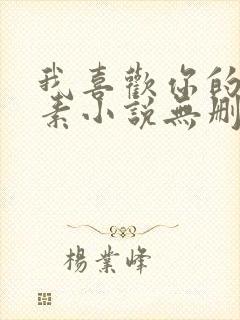 我喜歡你的
素小說無刪
楊業峰